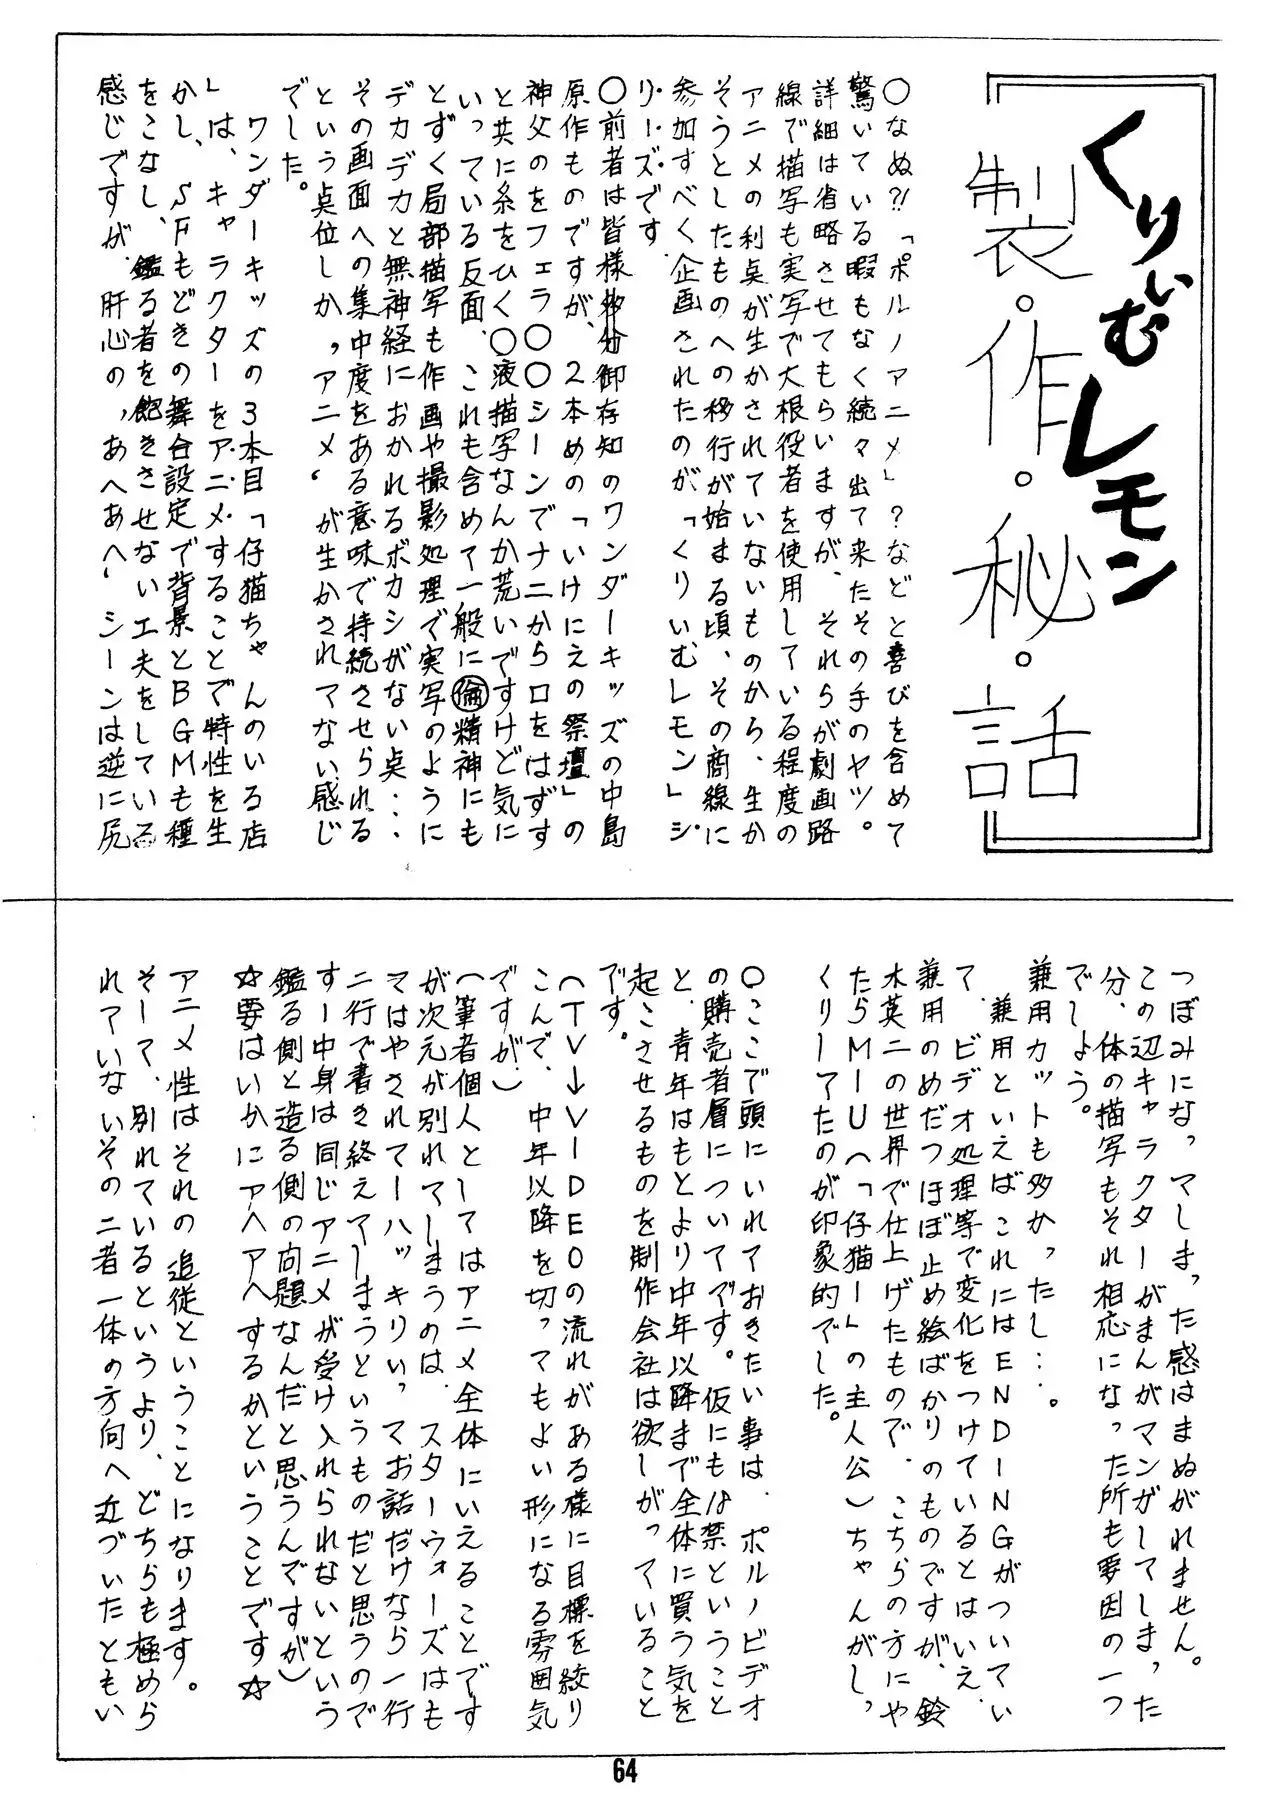 くりぃむレモン
製・作・秘・話
○なぬ?!「ポルノアニメ」?などと喜びを含めて
驚いている暇もなく続々出て来たその手のヤツ。
詳細は省略させてもらいますが、それらが劇画路
線で描写も実写で大根役者を使用している程度の
アニメの利点が生かされていないものから、生か
そうとしたものへの移行が始まる頃、その商線に
参加すべく企画されたのが「くりいむレモン」シ
リーズです。
○前者は皆様多分御存知のワンダーキッズの中島
原作ものですが、2本めの「いけにえの祭壇」の
神父のをフェラ○○シーンでナニから口をはずす
と共に糸をひく○液描写なんか荒いですけど気に
いっている反面、これも含めて一般に倫精神にも
とずく局部描写も作画や撮影処理で実写のように
デカデカと無神経におかれるボカシがない点・・・
その画面への集中度をある意味で持続させられる
という点位しか,アニメ‘が生かされてない感じ
でした。
ワンダーキッズの3本目「仔猫ちゃんのいる店
」は、キャラクターをア・ニ・メ・することで特性を生
かし、SFもどきの舞台設定で背景とBGMも種
をこなし、鑑る者を飽きさせない工夫をしている
感じですが、肝心の,あへあへ‘シーンは逆に尻
つぼみになってしまった感はまぬがれません。
この辺キャラクターがまんがマンがしてしまった
分、体の描写もそれ相応になった所も要因の一つ
でしょう。
兼用カットも多かったし・・・。
兼用といえばこれにはENDINGがついてい
て、ビデオ処理等で変化をつけているとはいえ、
兼用のめだつほぼ止め絵ばかりのものですが、鈴
木英二の世界で仕上げたもので、こちらの方にや
たらMーU(「仔猫ー」の主人公)ちゃんがし,
くりーてたのが印象的でした。
○ここで頭にいれておきたい事は、ポルノビデオ
の購売者層についてです。仮にも18禁ということ
と、青年はもとより中年以降まで全体に買う気を
起こさせるものを制作会社は欲しがっていること
です。
(TV→VIDEOの流れがある様に目標を絞り
こんで、中年以降を切ってもよい形になる雰囲気
ですが)
(筆者個人としてはアニメ全体にいえることです
が次元が別れてしまうのは、スターウォーズはも
てはやされてーハッキリいってお話だけなら一行
二行で書き終えてしまうというものだと思うので
すー中身は同じアニメが受け入れられないという
鑑る側と造る側の問題なんだと思うんですが)
☆要はいかにアヘアへするかということです☆
アニメ性はそれの追従ということになります。
そして、別れているというより、どちらも極めら
れていないその二者一体の方向へ近づいたともい
64